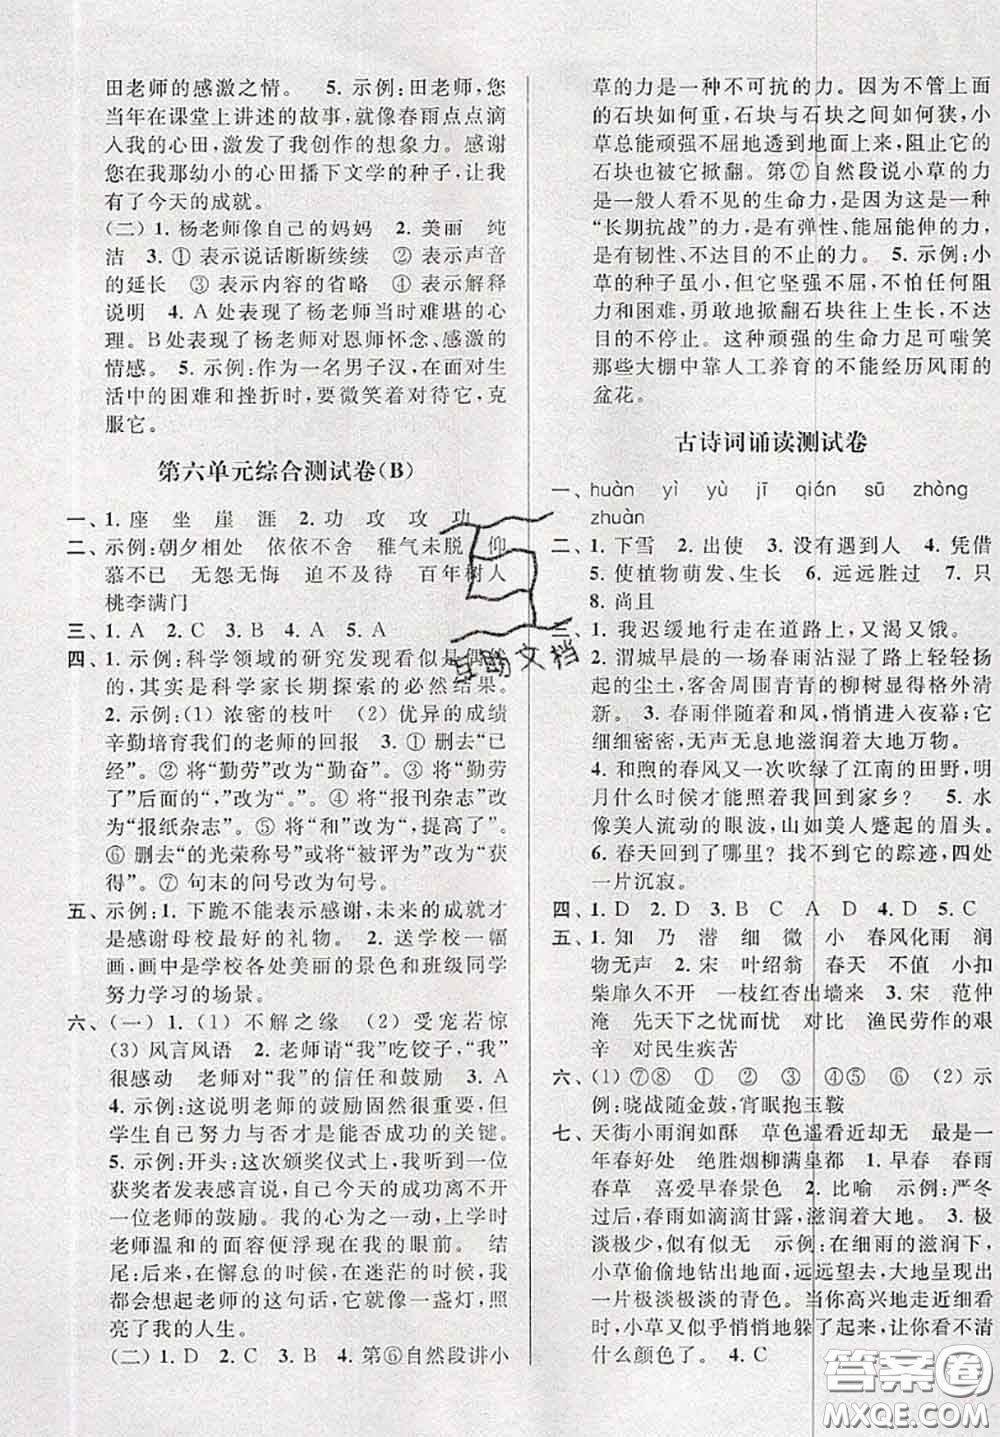 田老师的感激之情。 5. 示例:田老师,您
当年在课堂上讲述的故事,就像春雨点点滴
入我的心田,激发了我创作的想象力。感谢
您在我那幼小的心田播下文学的种子,让我
有了今天的成就。
(二) 1. 杨老师像自己的妈妈 2. 美丽 纯
洁 3. ① 表示说话断断续续 ② 表示声音
的延长 ③ 表示内容的省略 ④ 表示解释
说明 4. A 处表现了杨老师当时难堪的心
理。B 处表现了杨老师对恩师怀念、感激的
情感。 5. 示例:作为一名男子汉,在面对生
活中的困难和挫折时,要微笑着对待它,克
服它。
第六单元综合测试卷(B)
一、1. 座 坐 崖 涯 2. 功 攻 攻 功
二、示例:朝夕相处 依依不舍 稚气未脱 仰
慕不已 无怨无悔 迫不及待 百年树人
桃李满门
三、1. A 2. C 3. B 4. A 5. A
四、1. 示例:科学领域的研究发现看似是偶
的,其实是科学家长期探索的必然结果。
2. 示例:(1) 浓密的枝叶 (2) 优异的成绩
辛勤培育我们的老师的回报 3. ① 删去“已
经”。② 将“勤劳”改为“勤奋”。③ 将“努力
了”后面的“,”改为“、”。④ 将“报刊杂志”改
为“报纸杂志”。⑤ 将“和”改为“,提高了”。
⑥ 删去“的光荣称号”或将“被评为”改为“获
得”。⑦ 句末的问号改为句号。
五、示例:1. 下跪不能表示感谢,未来的成就才
是感谢母校最好的礼物。 2. 送学校一幅
画,画中是学校各处美丽的景色和班级同学
努力学习的场景。
六、(一) 1. (1) 不解之缘 (2) 受宠若惊
(3) 风言风语 2. 老师请“我”吃饺子,“我”
很感动 老师对“我”的信任和鼓励 3. A
4. 示例:这说明老师的鼓励固然很重要,但
学生自己努力与否才是能否成功的关键。
5. 示例:开头:这次颁奖仪式上,我听到一位
获奖者发表感言说,自己今天的成功离不开
一位老师的鼓励。我的心为之一动,上学时
老师温和的面容便浮现在我的眼前。 结
尾:在懈怠的时候,在迷茫的时候,我
都会想起老师的这句话,它就像一盏灯,照
亮了我的人生。
(二) 1. D 2. C 3. B 4. 第⑥自然段讲小
草的力是一种不可抗的力。因为不管上面
的石块如何重,石块与石块之间如何狭,小
草总能顽强不屈地透到地面上来,阻止它的
石块也被它掀翻。第⑦自然段说小草的力
是一般人看不见的生命力,因为这是一种
“长期抗战”的力,是有弹性、能屈能伸的力,
是有韧性、不达目的不止的力。 5. 示例:小
草的种子虽小,但它坚强不屈,不怕任何阻力
和困难,勇敢地掀翻石块往上生长,不达
目的不停止。这种顽强的生命力足可嗤笑
那些大棚中靠人工养育的不能经历风雨的
盆花。
古诗词诵读测试卷
一、huàn yì yù jī qián sū zhòng
zhuàn
二、1. 下雪 2. 出使 3. 没有遇到人 4. 凭借
5. 使植物萌发、生长 6. 远远胜过 7. 只
8. 尚且
三、1. 我迟缓地行走在道路上,又渴又饿。
2. 渭城早晨的一场春雨沾湿了路上轻轻扬
起的尘土,客舍周围青青的柳树显得格外清
新。 3. 春雨伴随着和风,悄悄进入夜幕;它
细细密密,无声无息地滋润着大地万物。
4. 和煦的春风又一次吹绿了江南的田野,明
月什么时候才能照着我回到家乡? 5. 水
像美人流动的眼波,山如美人蹙起的眉头。
6. 春天回到了哪里?找不到它的踪迹,四处
一片沉寂。
四、1. D 2. D 3. B C A D 4. D 5. C
五、1. 知 乃 潜 细 微 小 春风化雨 润
物无声 2. 宋 叶绍翁 春天 不值 小扣
柴扉久不开 一枝红杏出墙来 3. 宋 范仲
淹 先天下之忧而忧 对比 渔民劳作的艰
辛 对民生疾苦
六、(1) ⑦⑧ ① ② ③ ④⑤ ⑥ (2) 示
例:晓战随金鼓,宵眠抱玉鞍
七、天街小雨润如酥 草色遥看近却无 最是一
年春好处 绝胜烟柳满皇都 1. 早春 春雨
春草 喜爱早春景色 2. 比喻 示例:严冬
过后,春雨如滴滴甘露,滋润着大地。 3. 极
淡极少,似有似无 示例:在细雨的滋润下,
小草偷偷地钻出地面,远远望去,大地呈现出
一片极淡极淡的青色。当你高兴地走近细看
时,小草又似乎悄悄地躲了起来,让你看不清
什么颜色了。 4. C
互助文档
答案圈
MXQE.COM